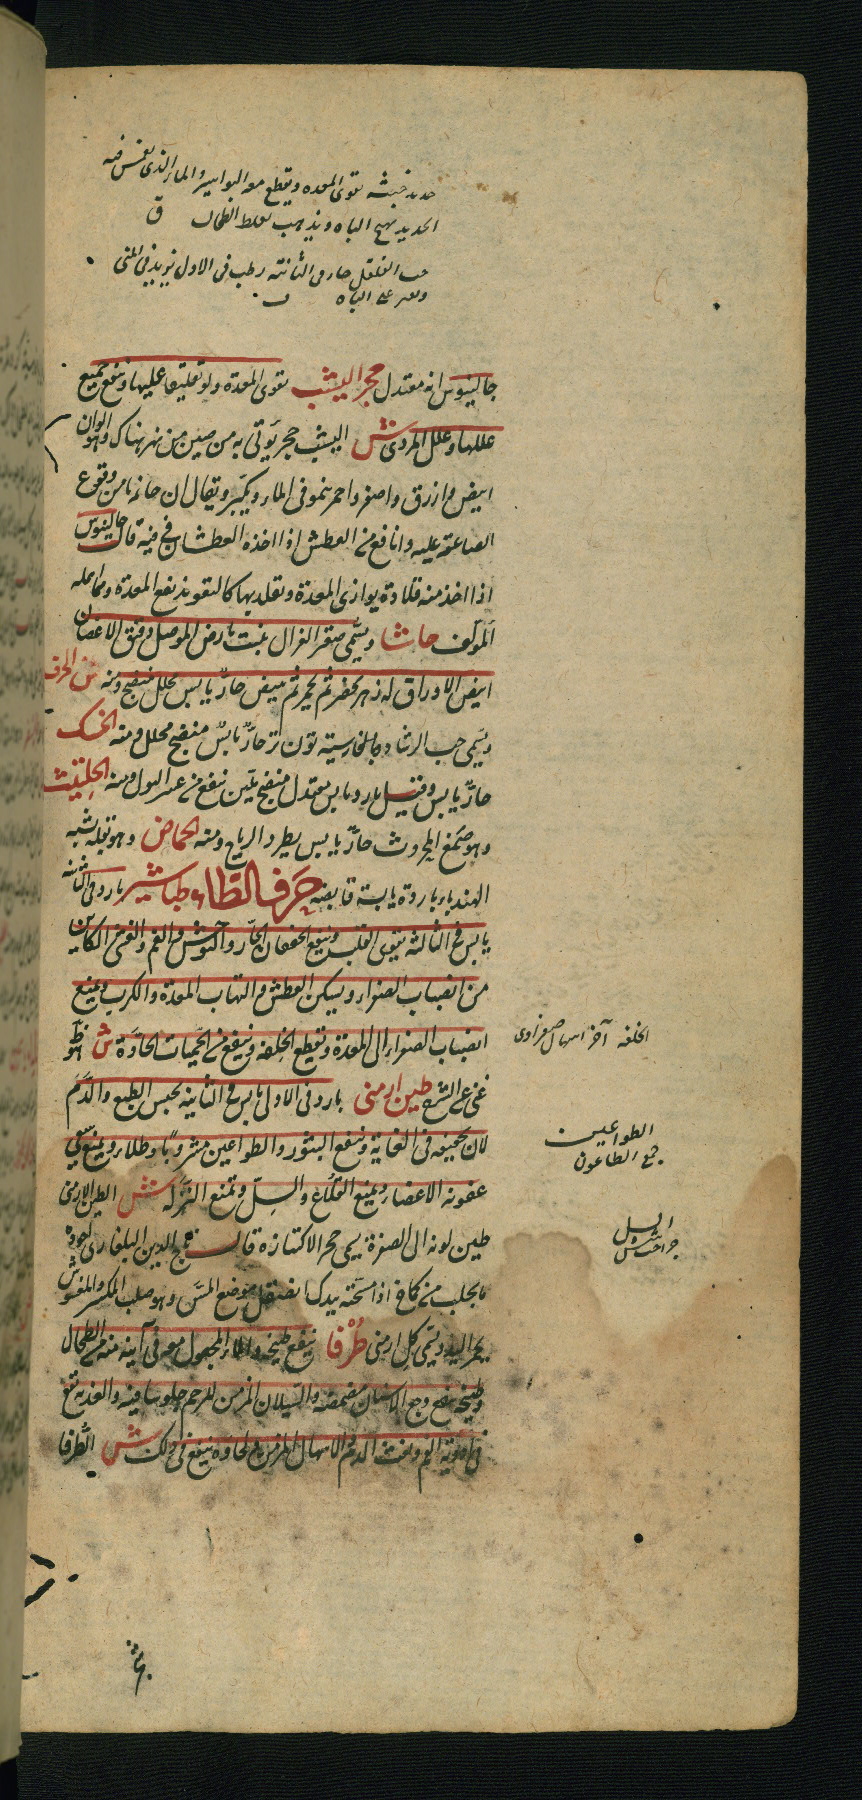 حديد خبثه يقوى المعدة ويقطع معه البواسير والماء الذى يغمس فيه
الحديد يهيج الباه ويذهب بغلظ الطحال ق
حب الفلفل حار فى الثانية رطب فى الاول يزيد فى المنى
ويعين على الباه
جالينوس انه معتدل حجر اليشب يقوى المعدة ولو تعليقا عليها وينفع جميع
عللها وعلل المرى ش اليشب حجر يؤتى به من صين من نهر هناك وهو الوان
ابيض وازرق واصفر واحمر ينمو فى الماء ويكبر ويقال ان حامله يأمن وقوع
الصاعقة عليه وانافع من العطش اذا اخذه العطشان فى فيه قال جالينوس
اذا اخذ منه قلادة يوازى المعدة وتقلد بها كالتعويذ نفع المعدة ومما اهمله
المؤلف حاشا ويسمى صعتر الغزال ينبت بارض الموصل دقيق الاغصان
ابيض الاوراق له زهر يخضر ثم يحمر ثم يبيض حار يابس محلل منضج ومنه الحرف
ويسمى حب الرشاد وبالفارسية تون تر حار يابس منضج محلل ومنه الحسك
حار يابس وقيل بارد يابس معتدل منضج ملين ينفع من عسر البول ومنه الحلتيت
وهو صمغ المحروث حار يابس يطرد الرياح ومنه الحماض وهو بقلة يشبه
الهندباء باردة يابسة قابضة حرف الطاء طباشير بارد فى الثانية
يابس فى الثالثة يقوى القلب وينفع الخفقان الحار والتوحش والغم والغشى الكاين
من انصباب الصفراء ويسكن العطش والتهاب المعدة والكرب ويمنع
انصباب الصفراء الى المعدة ويقطع الخلفة وينفع من الحميات الحادة ش هو
غنى عن الشرح طين ارمنى بارد فى الاولى يابس فى الثانية يحبس الطبع والدم
لان تجفيفه فى الغاية وينفع البثور والطواعين مشروبا وطلاء ويمنع سعى
عفونة الاعضاء ويمنع القلاع والسل وتمنع النزلة ش الطين الارمنى
طين لونه الى الصفرة يسمى حجر الاكتازه قال الدين البلغارى اجوده
ما يجلب من كماخ اذا مسحته بيدك انصقل موضع المس وهو صلب المكسر والمغشوش
يحمر اليد ويسمى كل ارمنى طرفا ينفع طبيخه والماء المجعول معه فى آنية منه من الطحال
وطبيخه ينفع وجع الاسنان مضمضة والسيلان المزمن للرحم جلوسا فيه والعذبة تقع
فى ادوية الفم ونفث الدم والاسهال المزمن ولحاؤه ينفع فى ذلك ش الطرفا
الخلفه آخر اسهال صفراوى
الطواعين
جمع الطاعون
السل